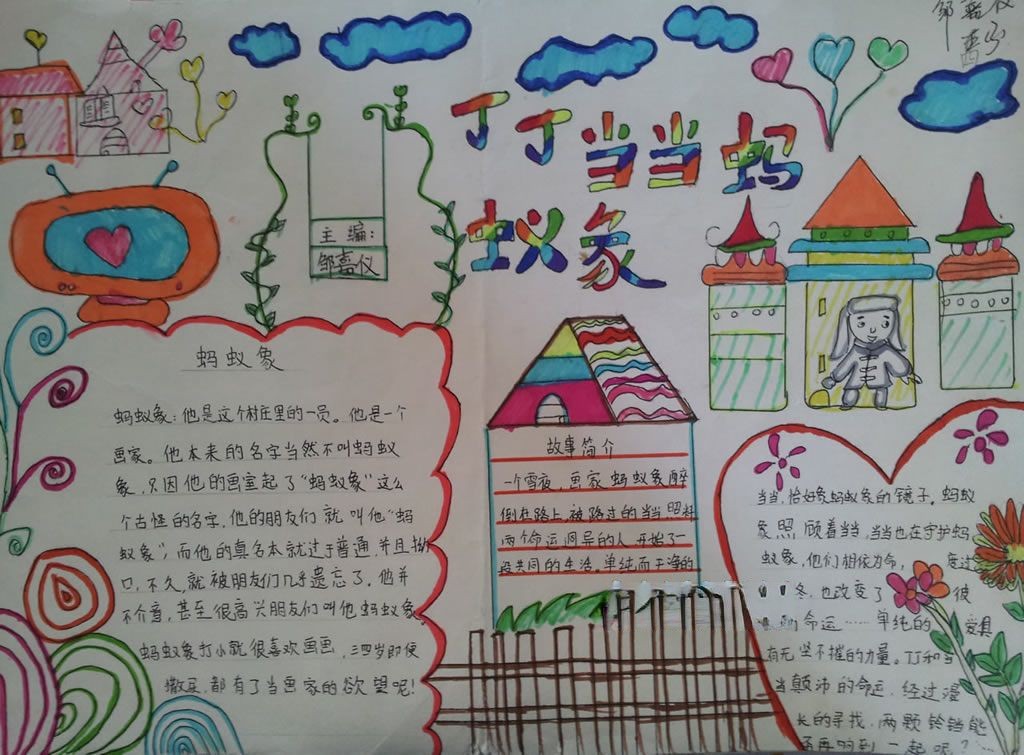 丁丁当当蚂
蚁象
主编:
邹嘉仪
蚂蚁象
蚂蚁象:他是这个村庄里的一员。他是一个
画家。他本来的名字当然不叫蚂蚁
象,只因他的画室起了“蚂蚁象”这么
个古怪的名字,他的朋友们就叫他“蚂
蚁象”,而他的真名本就过于普通,并且拗
口,不久,就被朋友们几乎遗忘了。他并
不介意,甚至很高兴朋友们叫他蚂蚁象。
蚂蚁象打小就很喜欢画画,三四岁即便
撒尿,都有了当画家的欲望呢!
故事简介
一个雪夜,画家蚂蚁象醉
倒在路上,被路过的当当照料
两个命运迥异的人,开始了一
段共同的生活。单纯而干净的
当当,恰好象蚂蚁象的镜子。蚂蚁
象照顾着当当,当当也在守护蚂
蚁象,他们相依为命,度过
冬,也改变了彼
命运……单纯的
有无坚不摧的力量。丁丁和当
当颠沛的命运,经过漫
长的寻找,两颗铃铛能